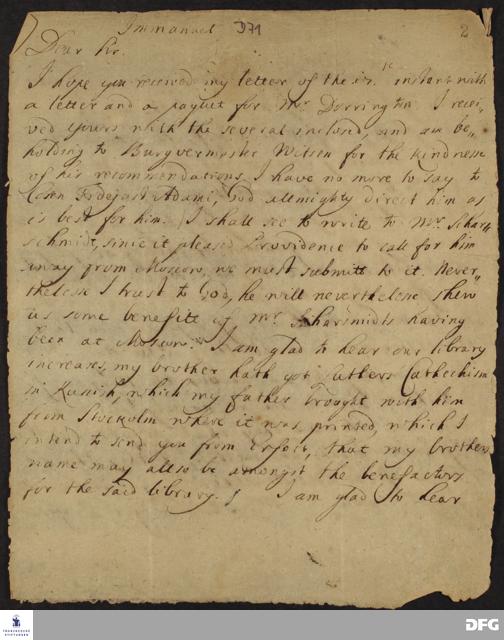 Immanuel D71 2
Dear Sir.
I hope you received my letter of the instant with
a letter and a paquet for Mr Dorrington. I recei„
ved yours with the several inclosed, and am be„
holding to Burgvermaster Witsen for the kindness
of his recommendations I have no more to say to
Adami, God allmighty direct him as
is best for him. I shall see to write to Mr. Schar„
schmidt, since it pleased Providence to call for him
away from Moscow, we must submitt to it. Never„
thelesse I trust to God, he will neverthelesse shew
us some benefitt of Mr. Sharsmidts having
been at Moscow. I am glad to hear our library
increases, my brother hath got Luthers Cathechism
in Russish, which my father brought with him
from Stockolm where it was printed, which I
intend to send you from Erfort, that my brothers
name may allso be amongst the benefactors
for the said library. I am glad to hear
FRANCKESCHE STIFTUNGEN
DFG